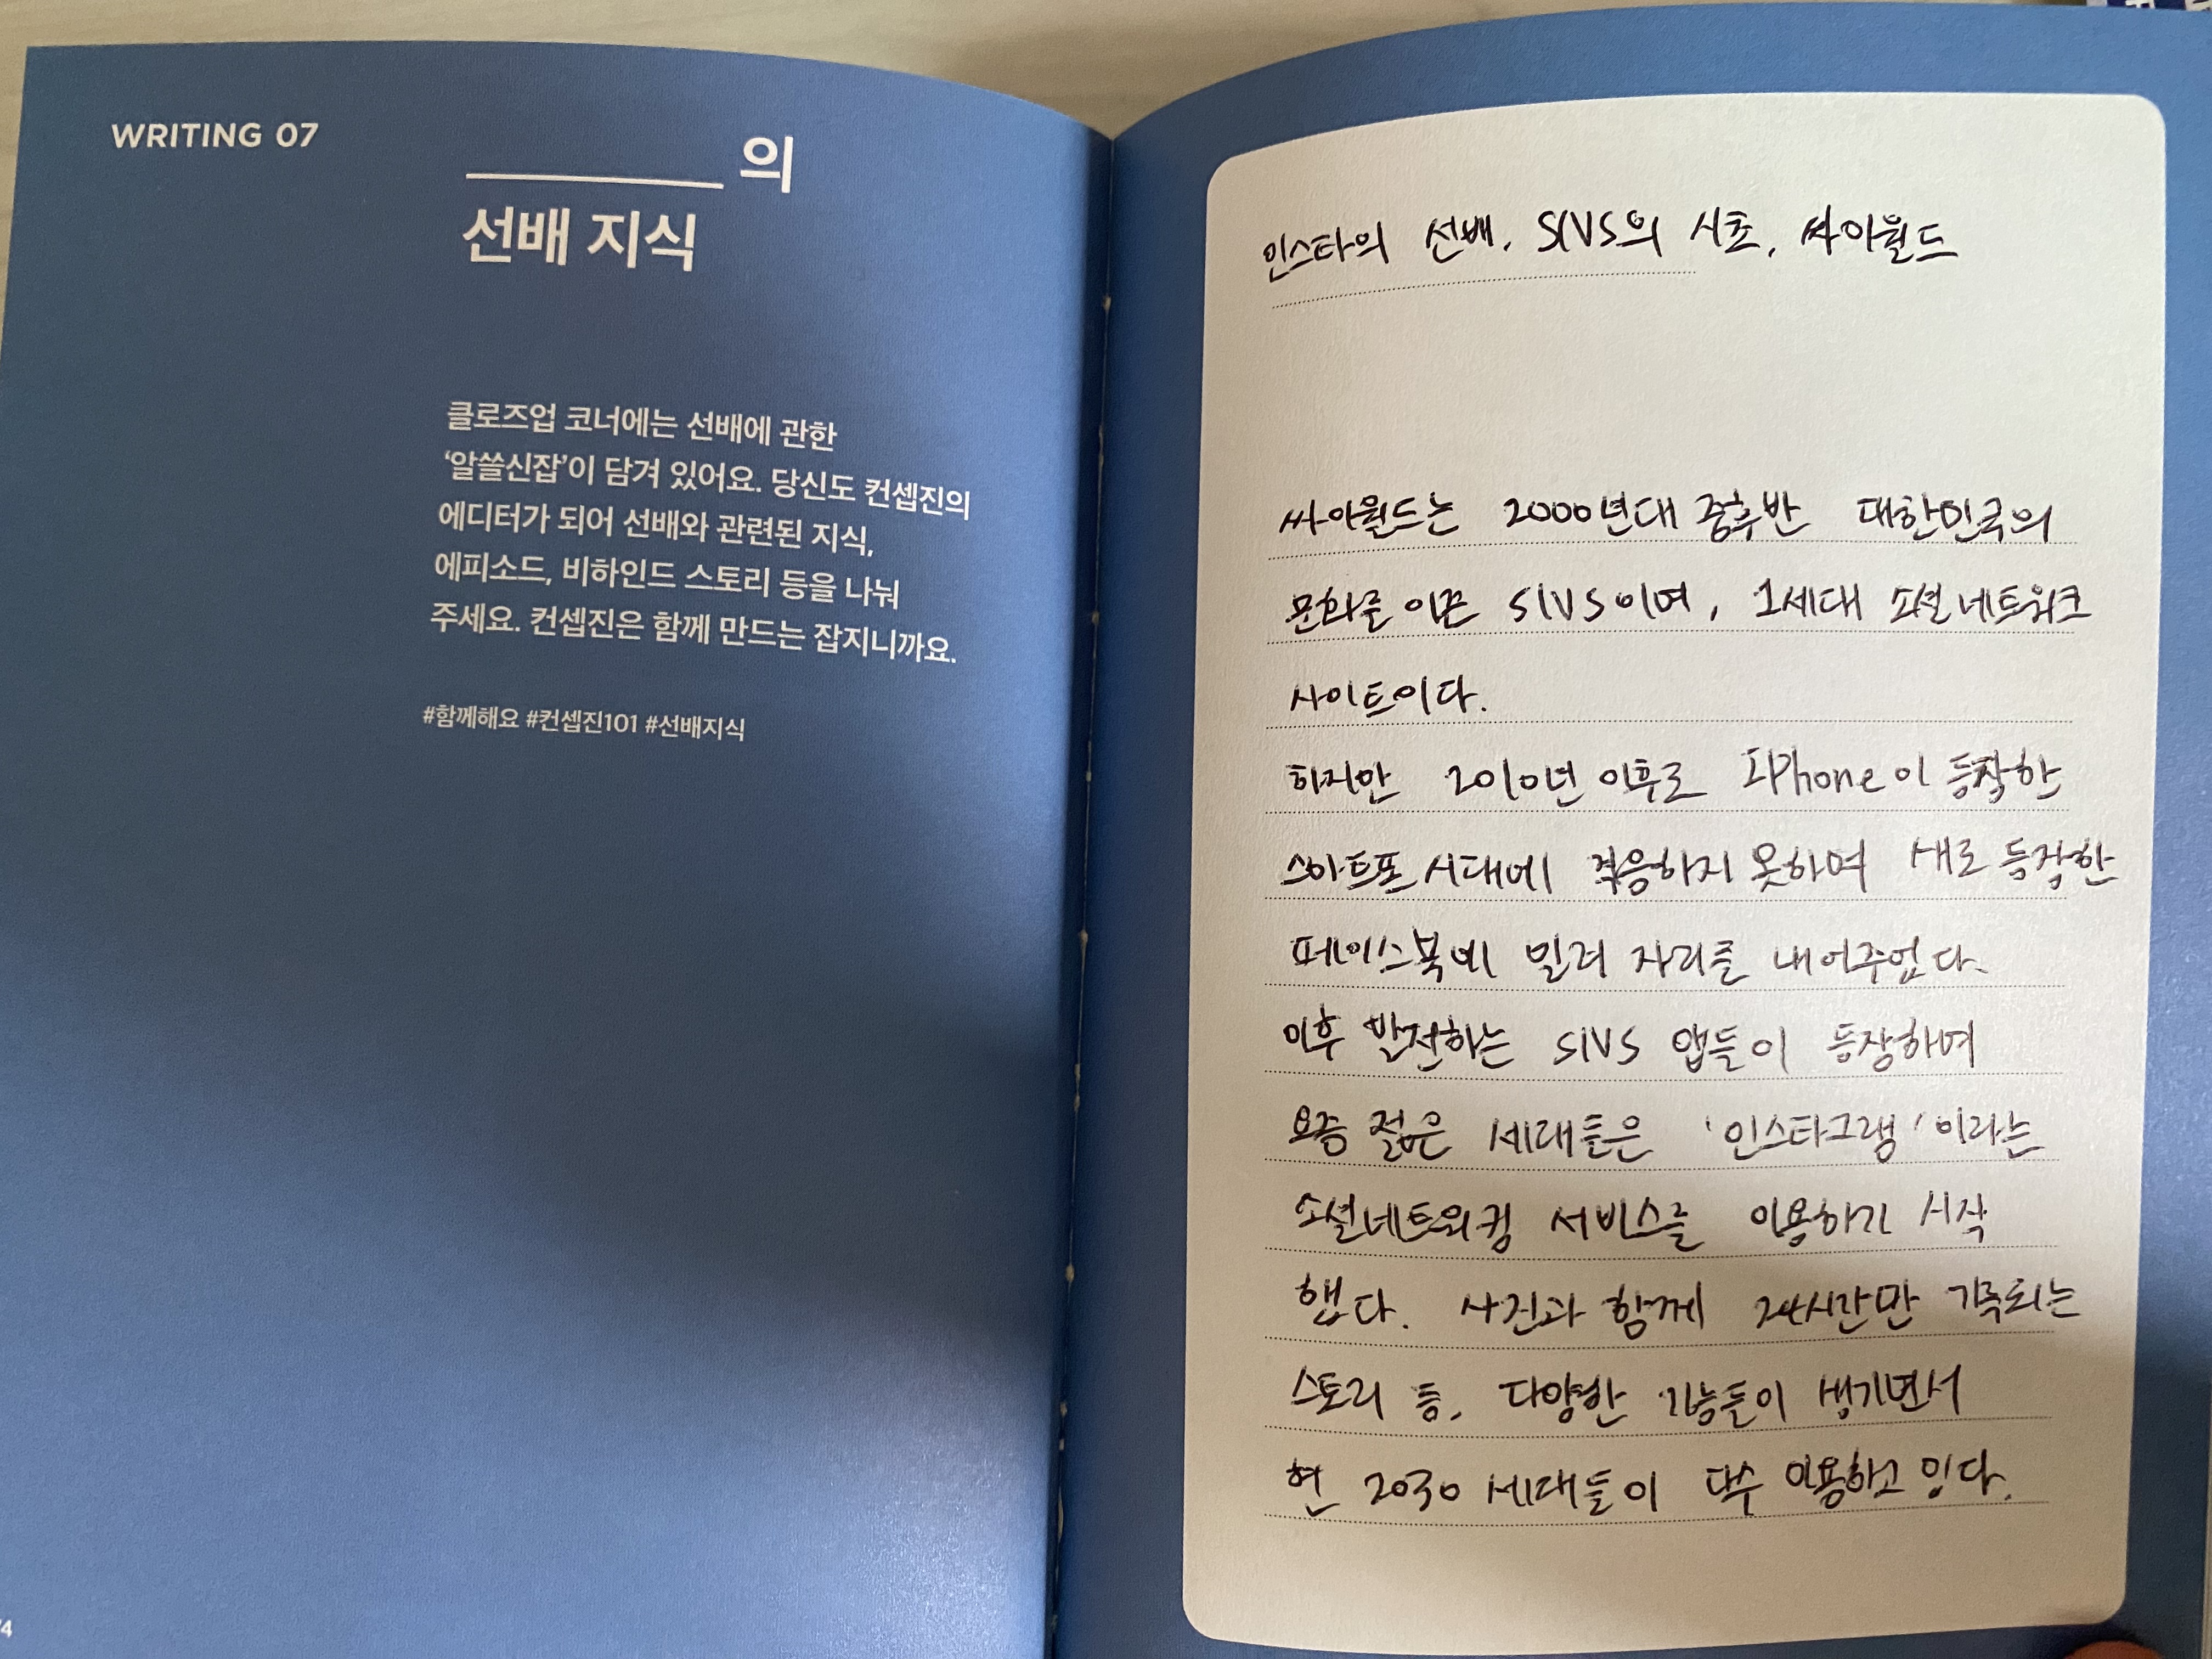 WRITING 07
의
선배 지식
클로즈업 코너에는 선배에 관한
‘알쓸신잡’이 담겨 있어요. 당신도 컨셉진의
에디터가 되어 선배와 관련된 지식,
에피소드, 비하인드 스토리 등을 나눠
주세요. 컨셉진은 함께 만드는 잡지니까요.
#함께해요 #컨셉진101 #선배지식
인스타의 선배, SNS의 시초, 싸이월드
싸이월드는 2000년대 중후반 대한민국의
문화를 이끈 SNS이며, 1세대 소셜네트워크
사이트이다.
하지만 2010년 이후로 IPhone이 등장한
스마트폰 시대에 적응하지 못하며 새로 등장한
페이스북에 밀려 자리를 내어주었다.
이후 발전하는 SNS 앱들이 등장하며
요즘 젊은 세대들은 '인스타그램'이라는
소셜네트워킹 서비스를 이용하기 시작
했다. 사진과 함께 24시간만 기록되는
스토리 등, 다양한 기능들이 생기면서
현 2030 세대들이 다수 이용하고 있다.